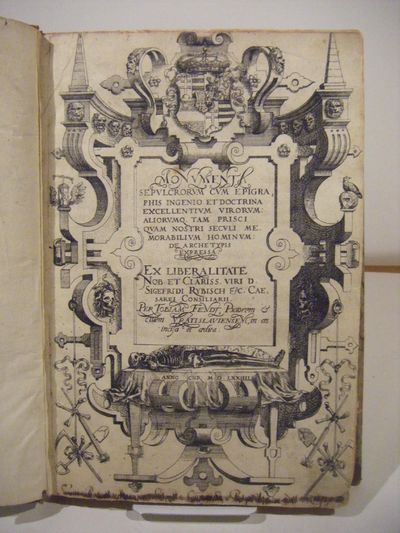 MONVMENTA
SEPVLCRORVM CVM EPIGRA,
PHIS INGENIO ET DOCTRINA
EXCELLENTIVM VIRORVM:
ALIORVMQ. TAM PRISCI
QVAM NOSTRI SECVLI ME,
MORABILIVM HOMINVM:
DE ARCHETYPIS
EXPRESSA.
EX LIBERALITATE
NOB. ET CLARISS. VIRI D.
SIGEFRIDI RYBISCH &C. CAE,
SAREI CONSILIARII.
PER TOBIAM FENDT, Pictorem &
civem VRATISLAVIENSEM, in æs
incisa et ædita
ANNO CHR. M.D.LXXIIII